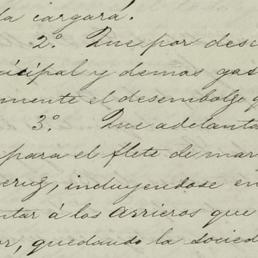 la cargara.
2.º Que por desc
cipal y demas gas
mente el desembolzo q
3.º Que adelanta
para el flete de mar
cruz, incluyendose en
ntar á los arrieros que
or, quedando la socied